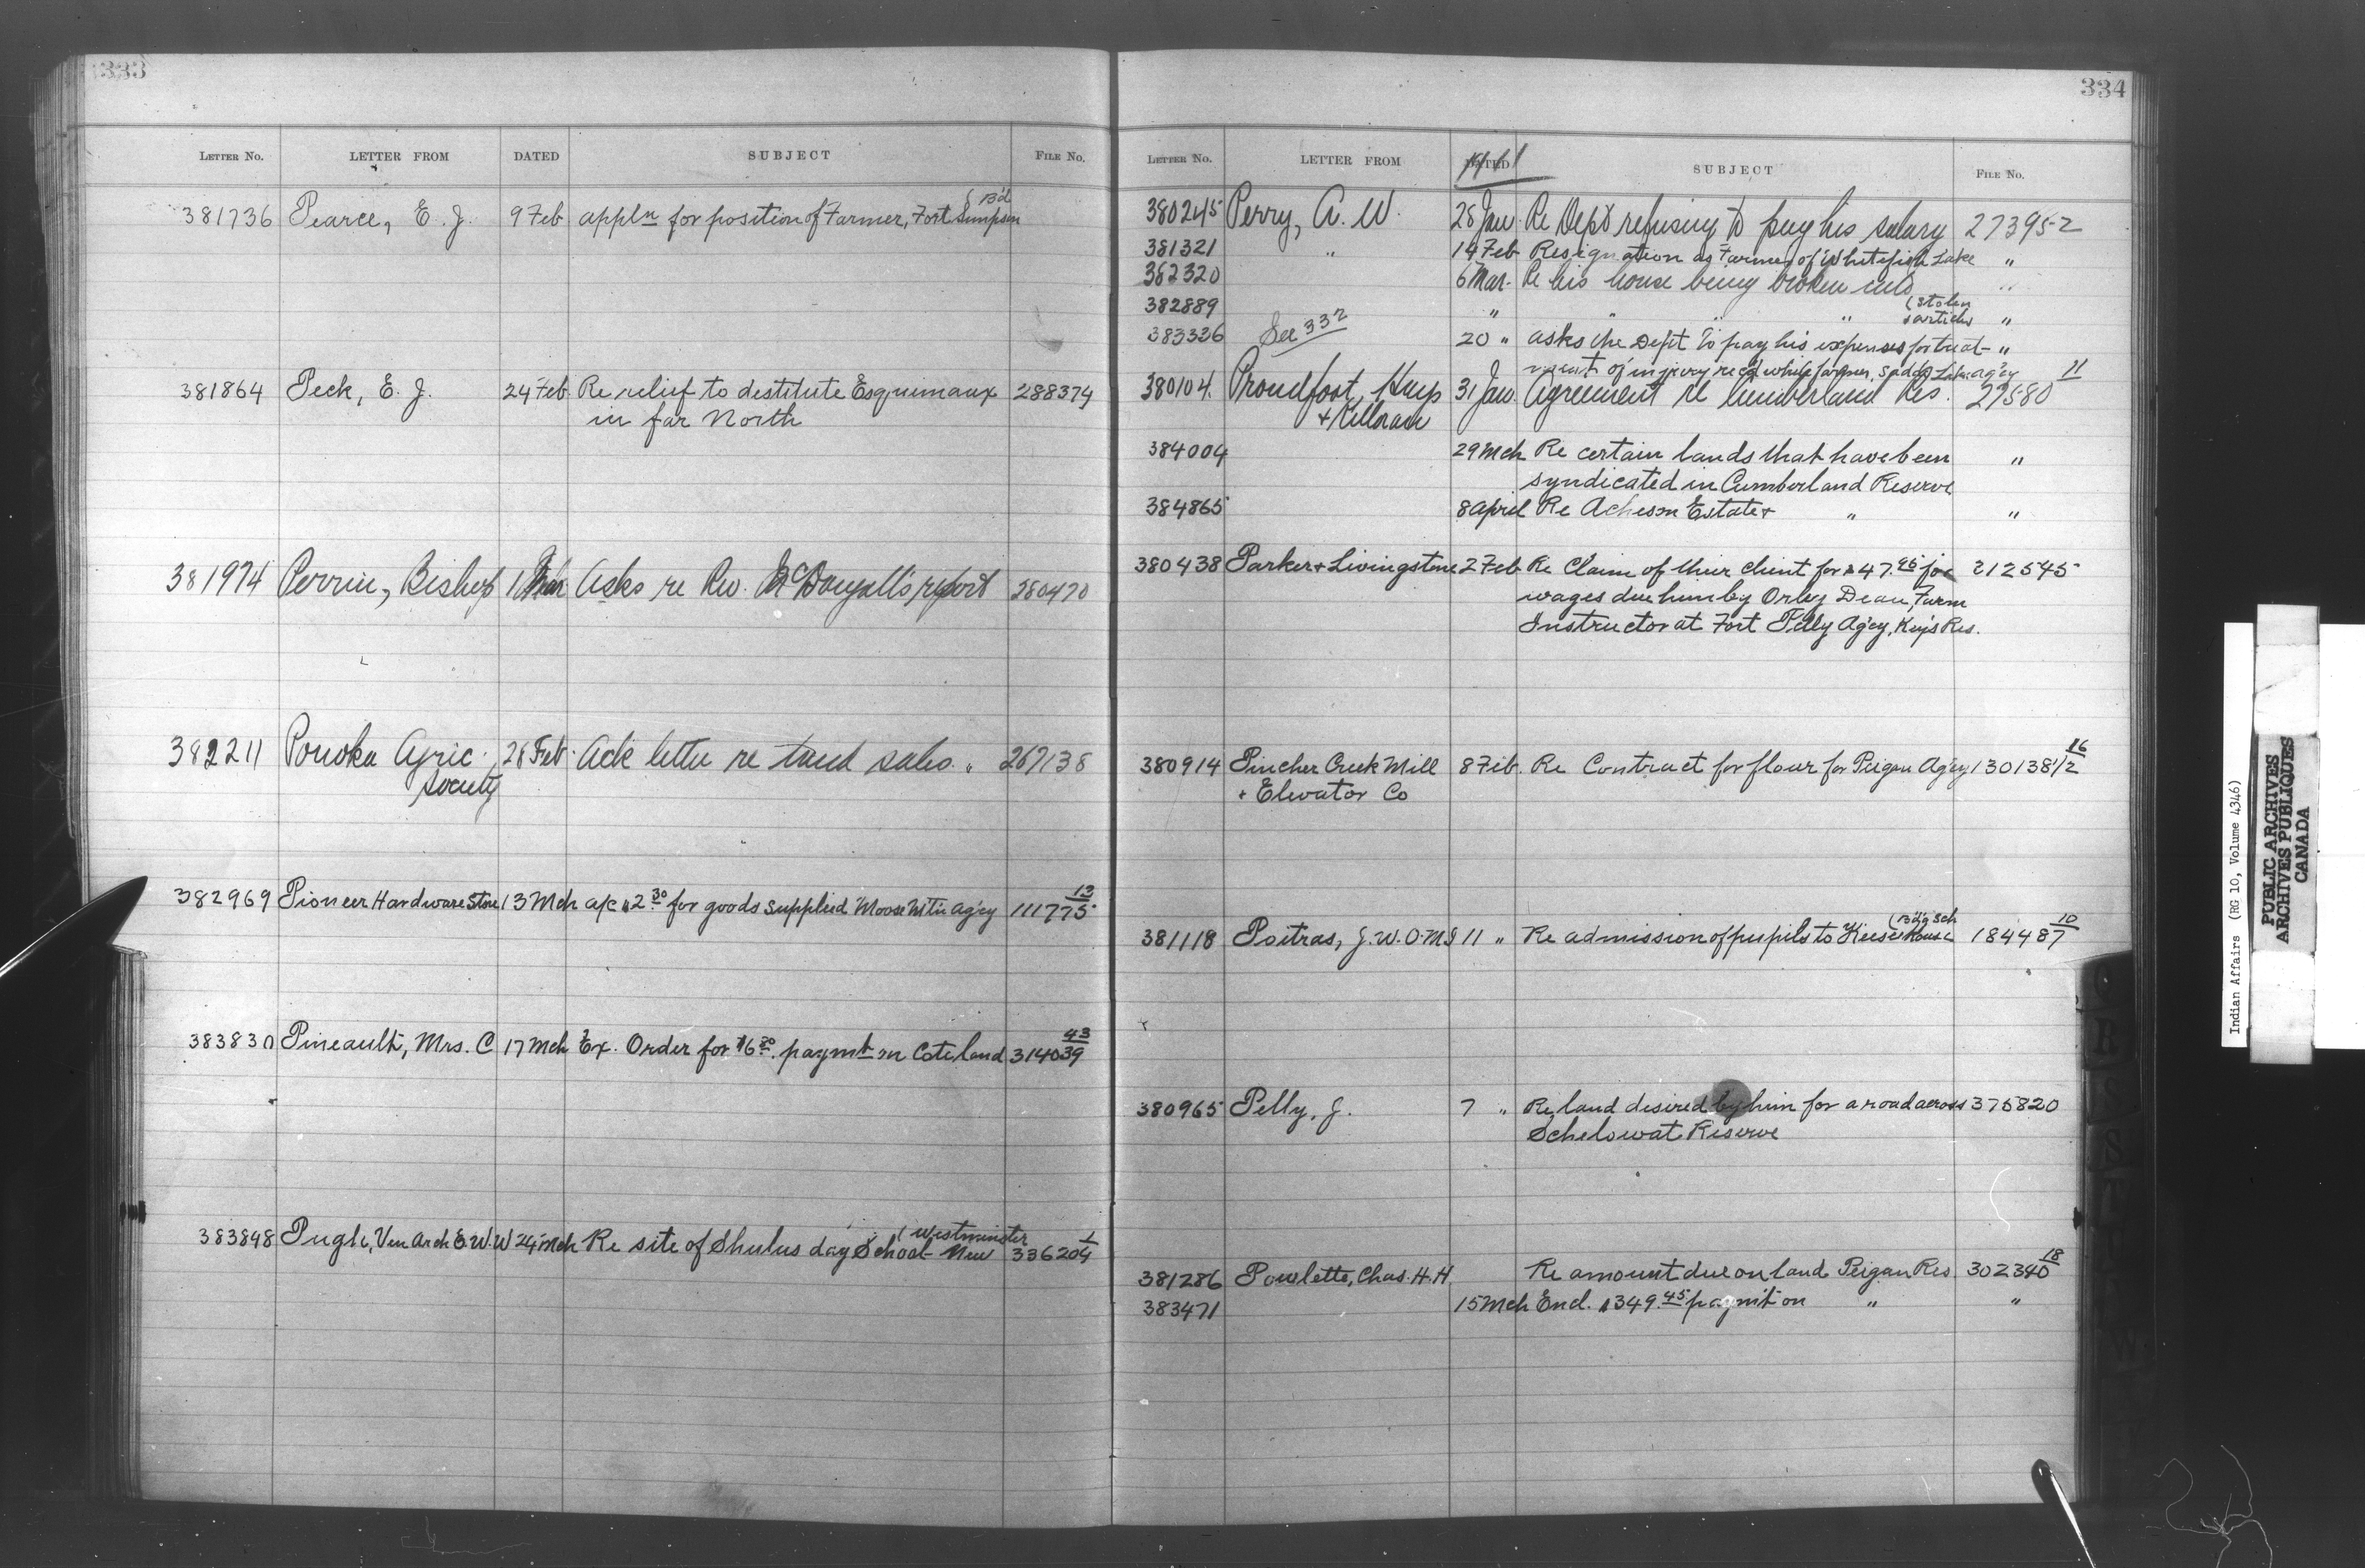 333
LETTER No. LETTER FROM DATED SUBJECT FILE No.
381736 Pearce, E. J. 9 Feb appln for position of Farmer, Fort Simpson (B'd
381864 Peck, E. J. 24 Feb. Re relief to destitute Esquimaux 288374
in far North
381974 Perrin, Bishop 1 Mar Asks re Rev. McDougall's report 280470
382211 Ponoka Agric. 28 Feb. Ack letter re land sales. " 267138
Society
382969 Pioneer Hardware Store 13 Mch a/c $2.30 for goods supplied Moose Mtn Ag'cy 111775 13
383830 Pineault, Mrs. C 17 Mch Ex. Order for $16.80. paymt on Cote land 314039 43
(Westminster
383898 Pugh, Ven Arch E. W. W 24 Mch Re site of Shulus day School - New 336204 1
334
LETTER No. LETTER FROM DATED SUBJECT FILE No.
380245 Perry, A. W. 28 Jan. Re Dept refusing to pay his salary 273952
381321 " 14 Feb Resignation as Farmer of Whitefish Lake "
362320 6 Mar. Re his house being broken into "
(stolen
382889 " " " " articles "
383326 See 332 20 " asks the Dept to pay his expenses for treat- "
ment of injury rec'd while farmer, Saddle Lake ag'cy
380104. Proudfoot, Hays 31 Jan. Agreement re Cumberland Res. 27580 11
& Killoran
384004 29 Mch Re certain lands that have been "
syndicated in Cumberland Reserve
384865 8 April Re Acheson Estate & " "
380438 Parker & Livingstone 2 Feb. Re Claim of their client for $47.95 for 212545
wages due him by Orley Dean, Farm
Instructor at Fort Pelly Ag'cy, Key's Res.
380914 Pincher Creek Mill 8 Feb. Re Contract for flour for Peigan Ag'cy 130138 1/2 16
& Elevator Co
(B'd'g Sch
381118 Poitras, J. W. O.M.I 11 " Re admission of pupils to Keeseekouse 184487 10
380965 Pelly, J. 7 " Re land desired by him for a road across 375820
Schelowat Reserve
381286 Powlette, Chas. H. H. Re amount due on land Peigan Res 302340 18
383471 15 Mch Encl. $349.45 paymt on " "
Indian Affairs (RG 10, Volume 4346)
PUBLIC ARCHIVES
ARCHIVES PUBLIQUES
CANADA